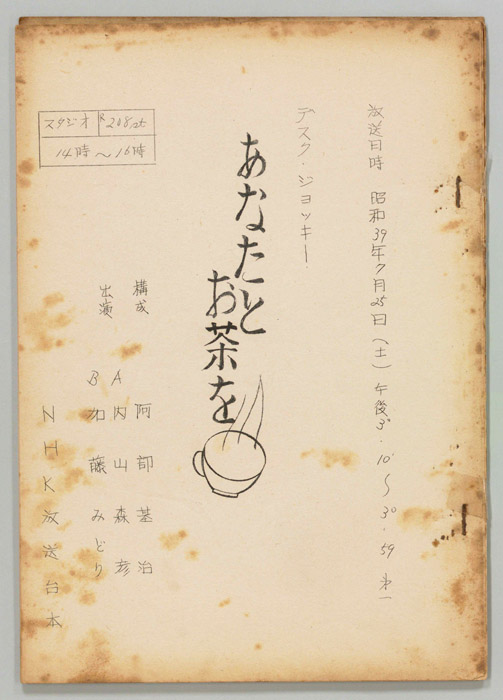 放送日時 昭和39年7月25日(土)午後3.10～3.59 第一
デスク・ジョッキー
あなたと
お茶を
スタジオ R208st
14時～16時
構成 阿部基治
出演 A 内山森彦
B 加藤みどり
NHK放送台本